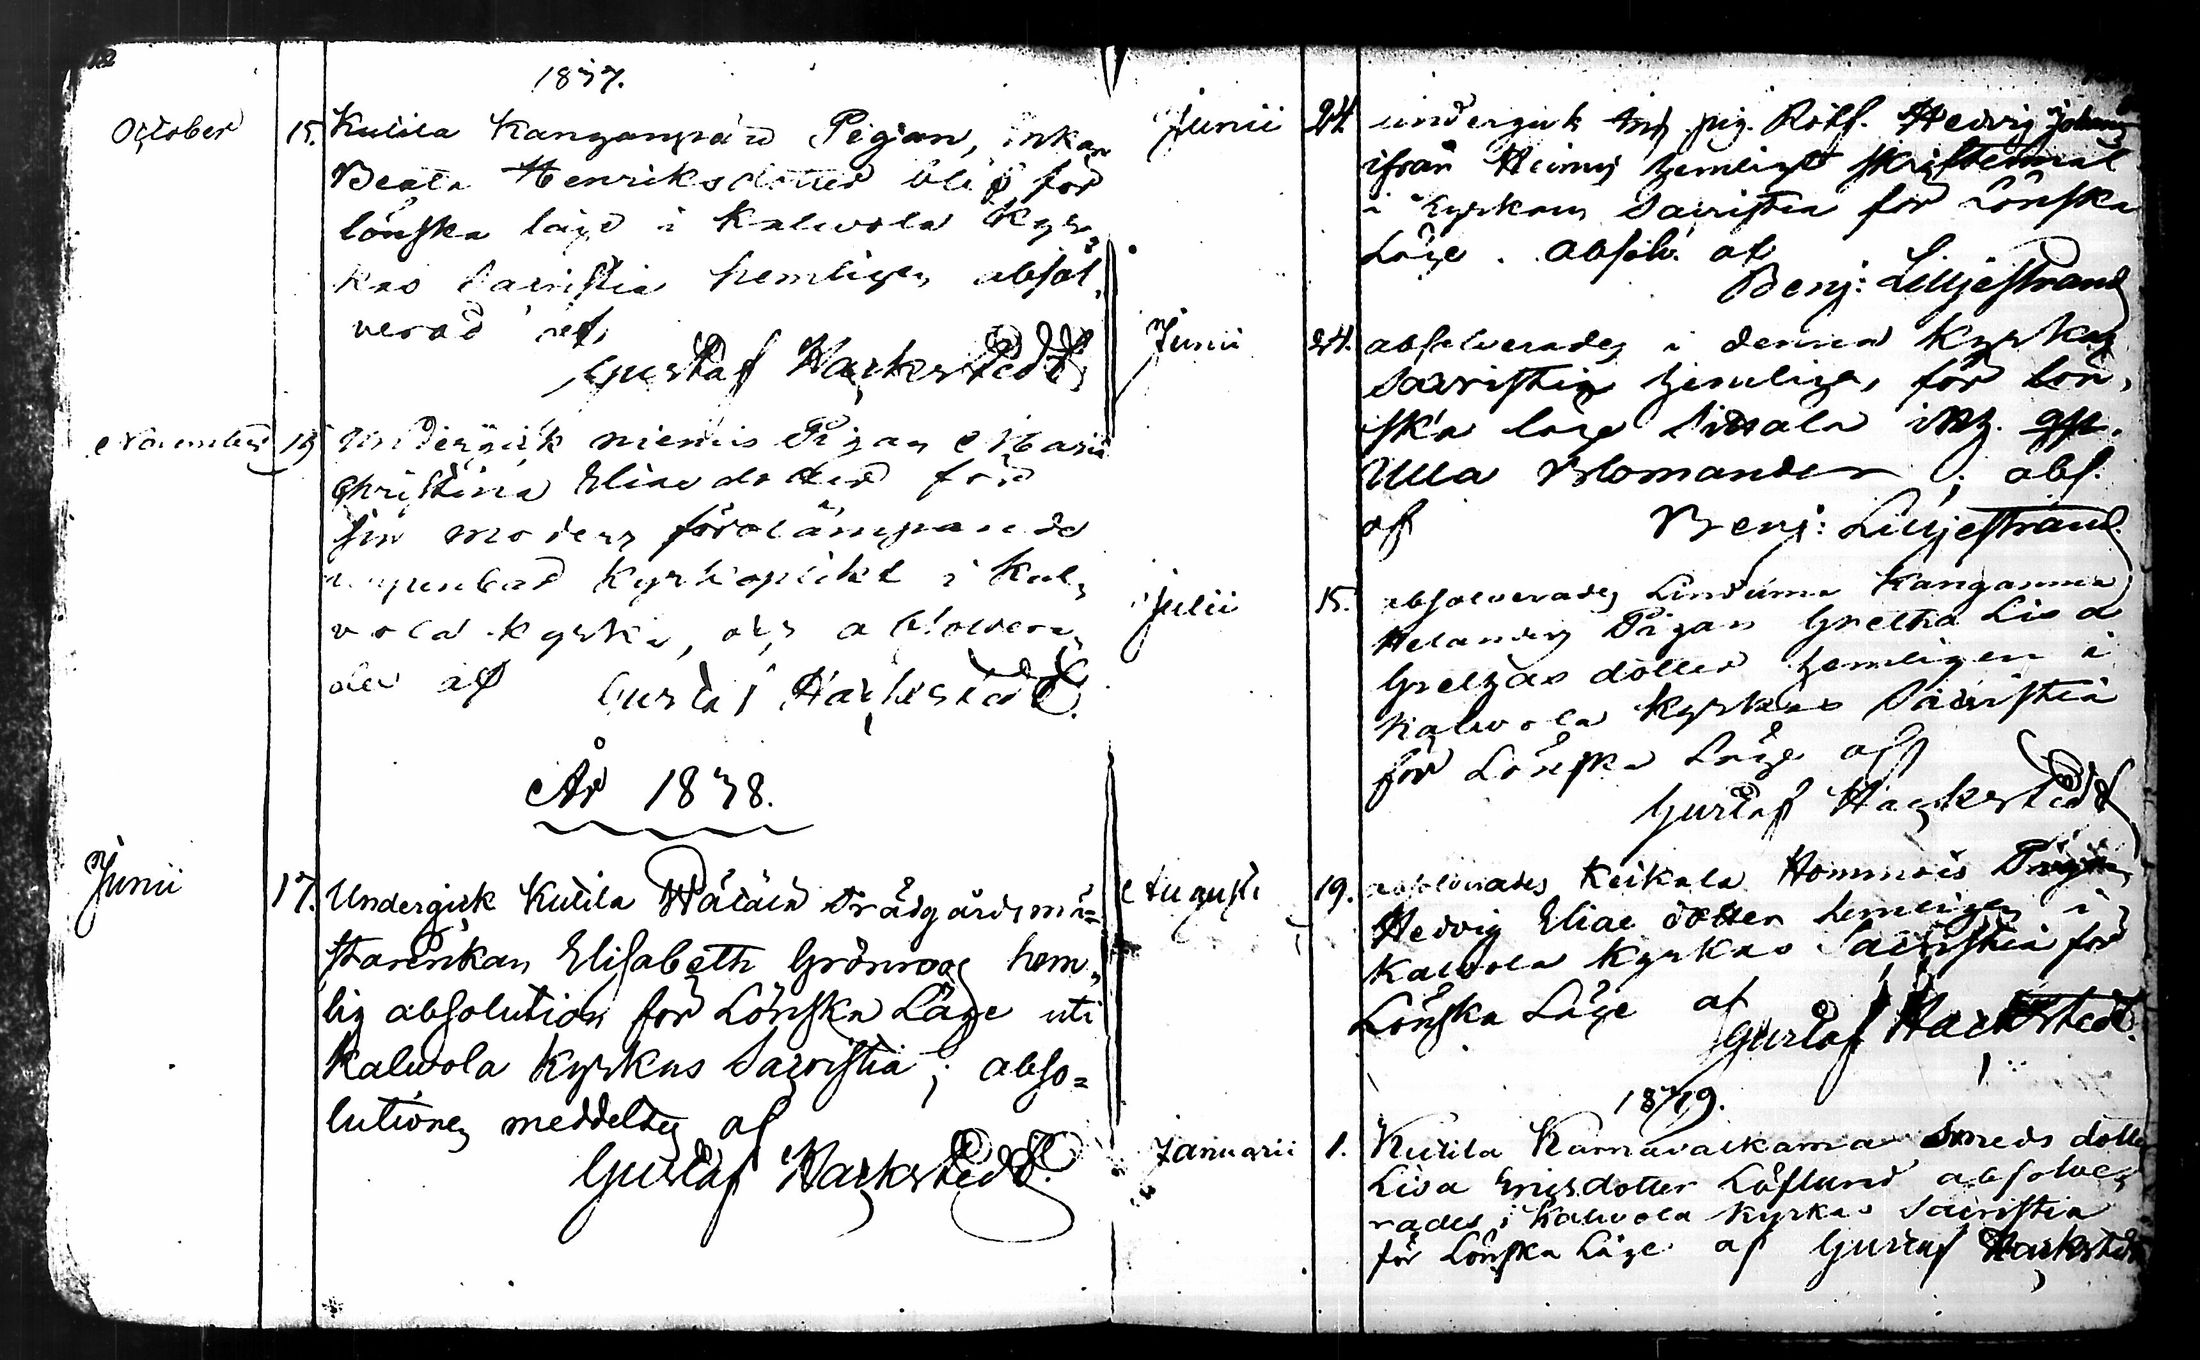 1837.
October 15. Kulila Kanganpää Pigan, Enkan
Beata Henriksdotter blef för
lönska läge i Kalwola Kyr-
kas Sacristia hemligen absol-
verad af,
Gustaf Hackstedt
November 19 Undergick niemis Pigan Maria
Christina Eliaedotter för
sin moders förolämpande
uppenbar Kyrkoplikt i Kal-
vola Kyrka, och absolvera-
des af Gustaf Hackstedt.
År 1838.
Junii 17. Undergick Kulila Trädgårdsmä=
starenkan Elisabeth Grönroos hem-
lig absolution för Lönska Läge uti
Kalwola Kyrkas Sacristia; abso=
lutionen meddeltes af
Gustaf Hackstedt.
Junii 24 undergick pig. Hedvig Johans
ifrån Heinus hemligt skriftermål
i Kyrkans Sacristia för Lönska
Läge. Absolv. af
Benj: Lilljestrand
Junii 24. absolverades i denna Kyrkas
Sacristia hemligen, för lön-
ska läge inh.
Ulla Blomander; abs.
af Benj: Lilljestrand.
Julii 15. absolverades Lindume Kanganma
Helanders Pigan Gretha Lisa
dotter hemligen i
Kalwola Kyrkas Sacristia
för Lönska Läge aff
Gustaf Hackstedt
Augusti 19. absolverades Keikala Hommois Pigan
Hedvig Eliae dotter hemligen i
Kalwola Kyrkas Sacristia för
Lönska Läge af
Gustaf Hackstedt.
1839.
Januarii 1. Kulila Smeds dotter
Lisa Ericsdotter Löflund absolve-
rades i Kalwola Kyrkas Sacristia
för Lönska Läge af Gustaf Hackstedt